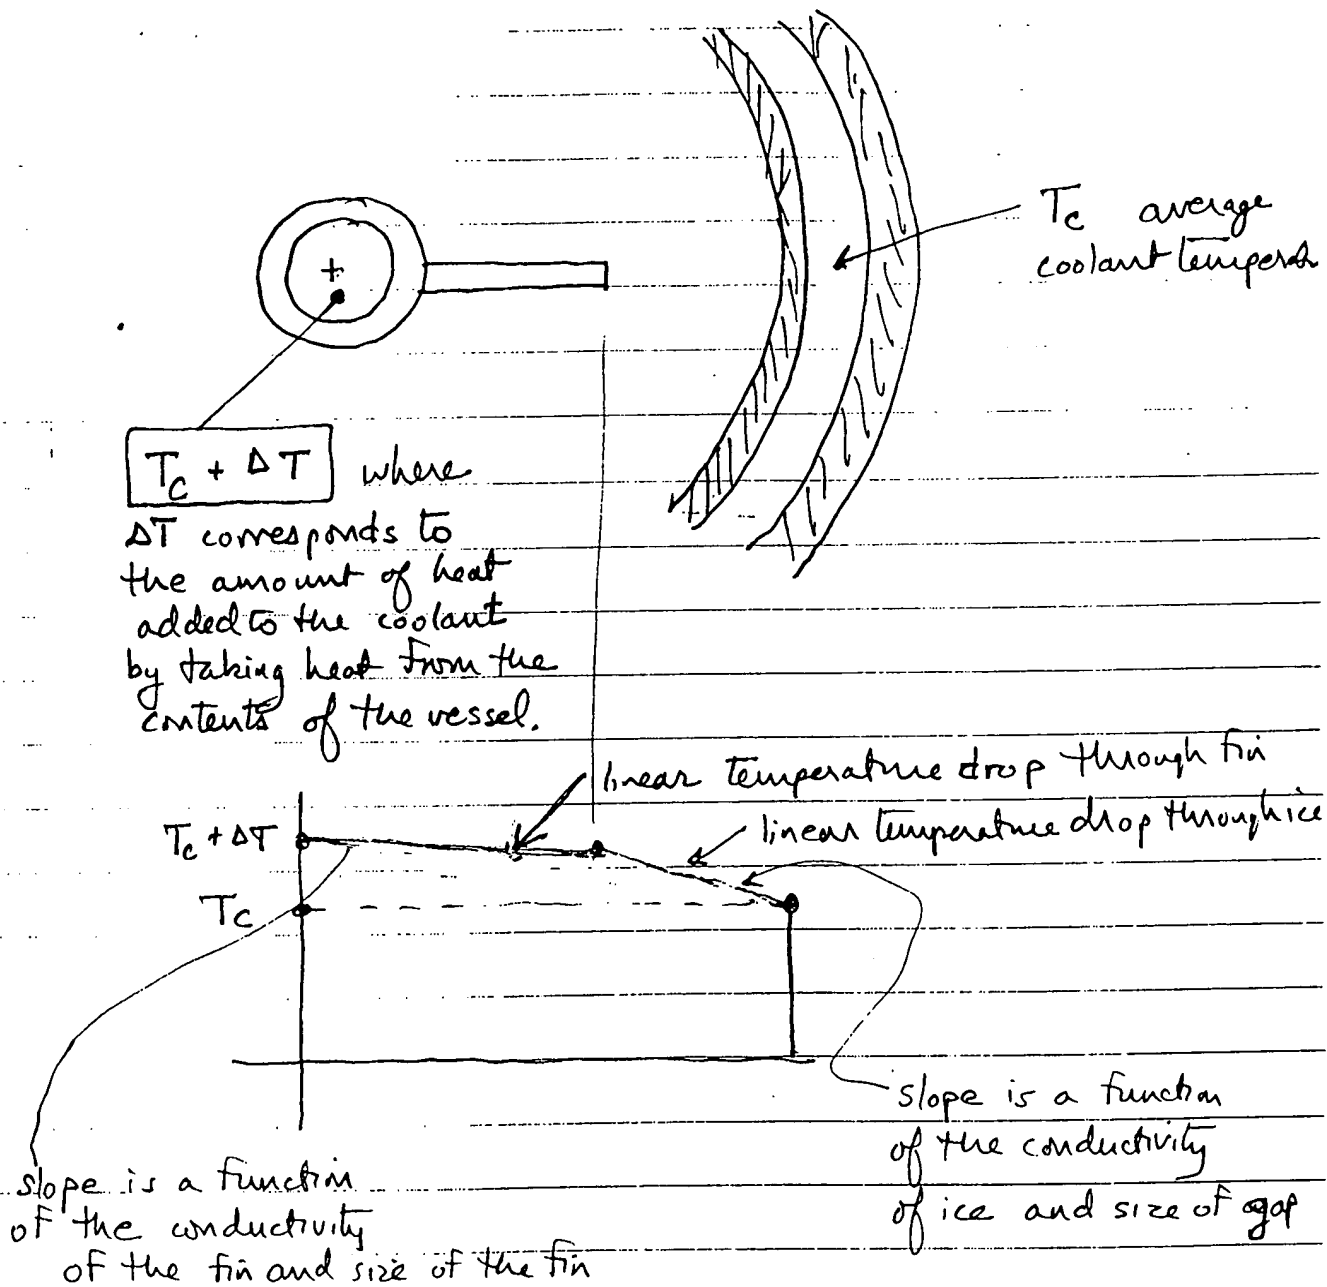 Tc average
coolant temperat
Tc + ΔT where
ΔT corresponds to
the amount of heat
added to the coolant
by taking heat from the
contents of the vessel.
linear temperature drop through fin
linear temperature drop through ice
Tc + ΔT
Tc
slope is a function
of the conductivity
of ice and size of gap
slope is a function
of the conductivity
of the fin and size of the fin